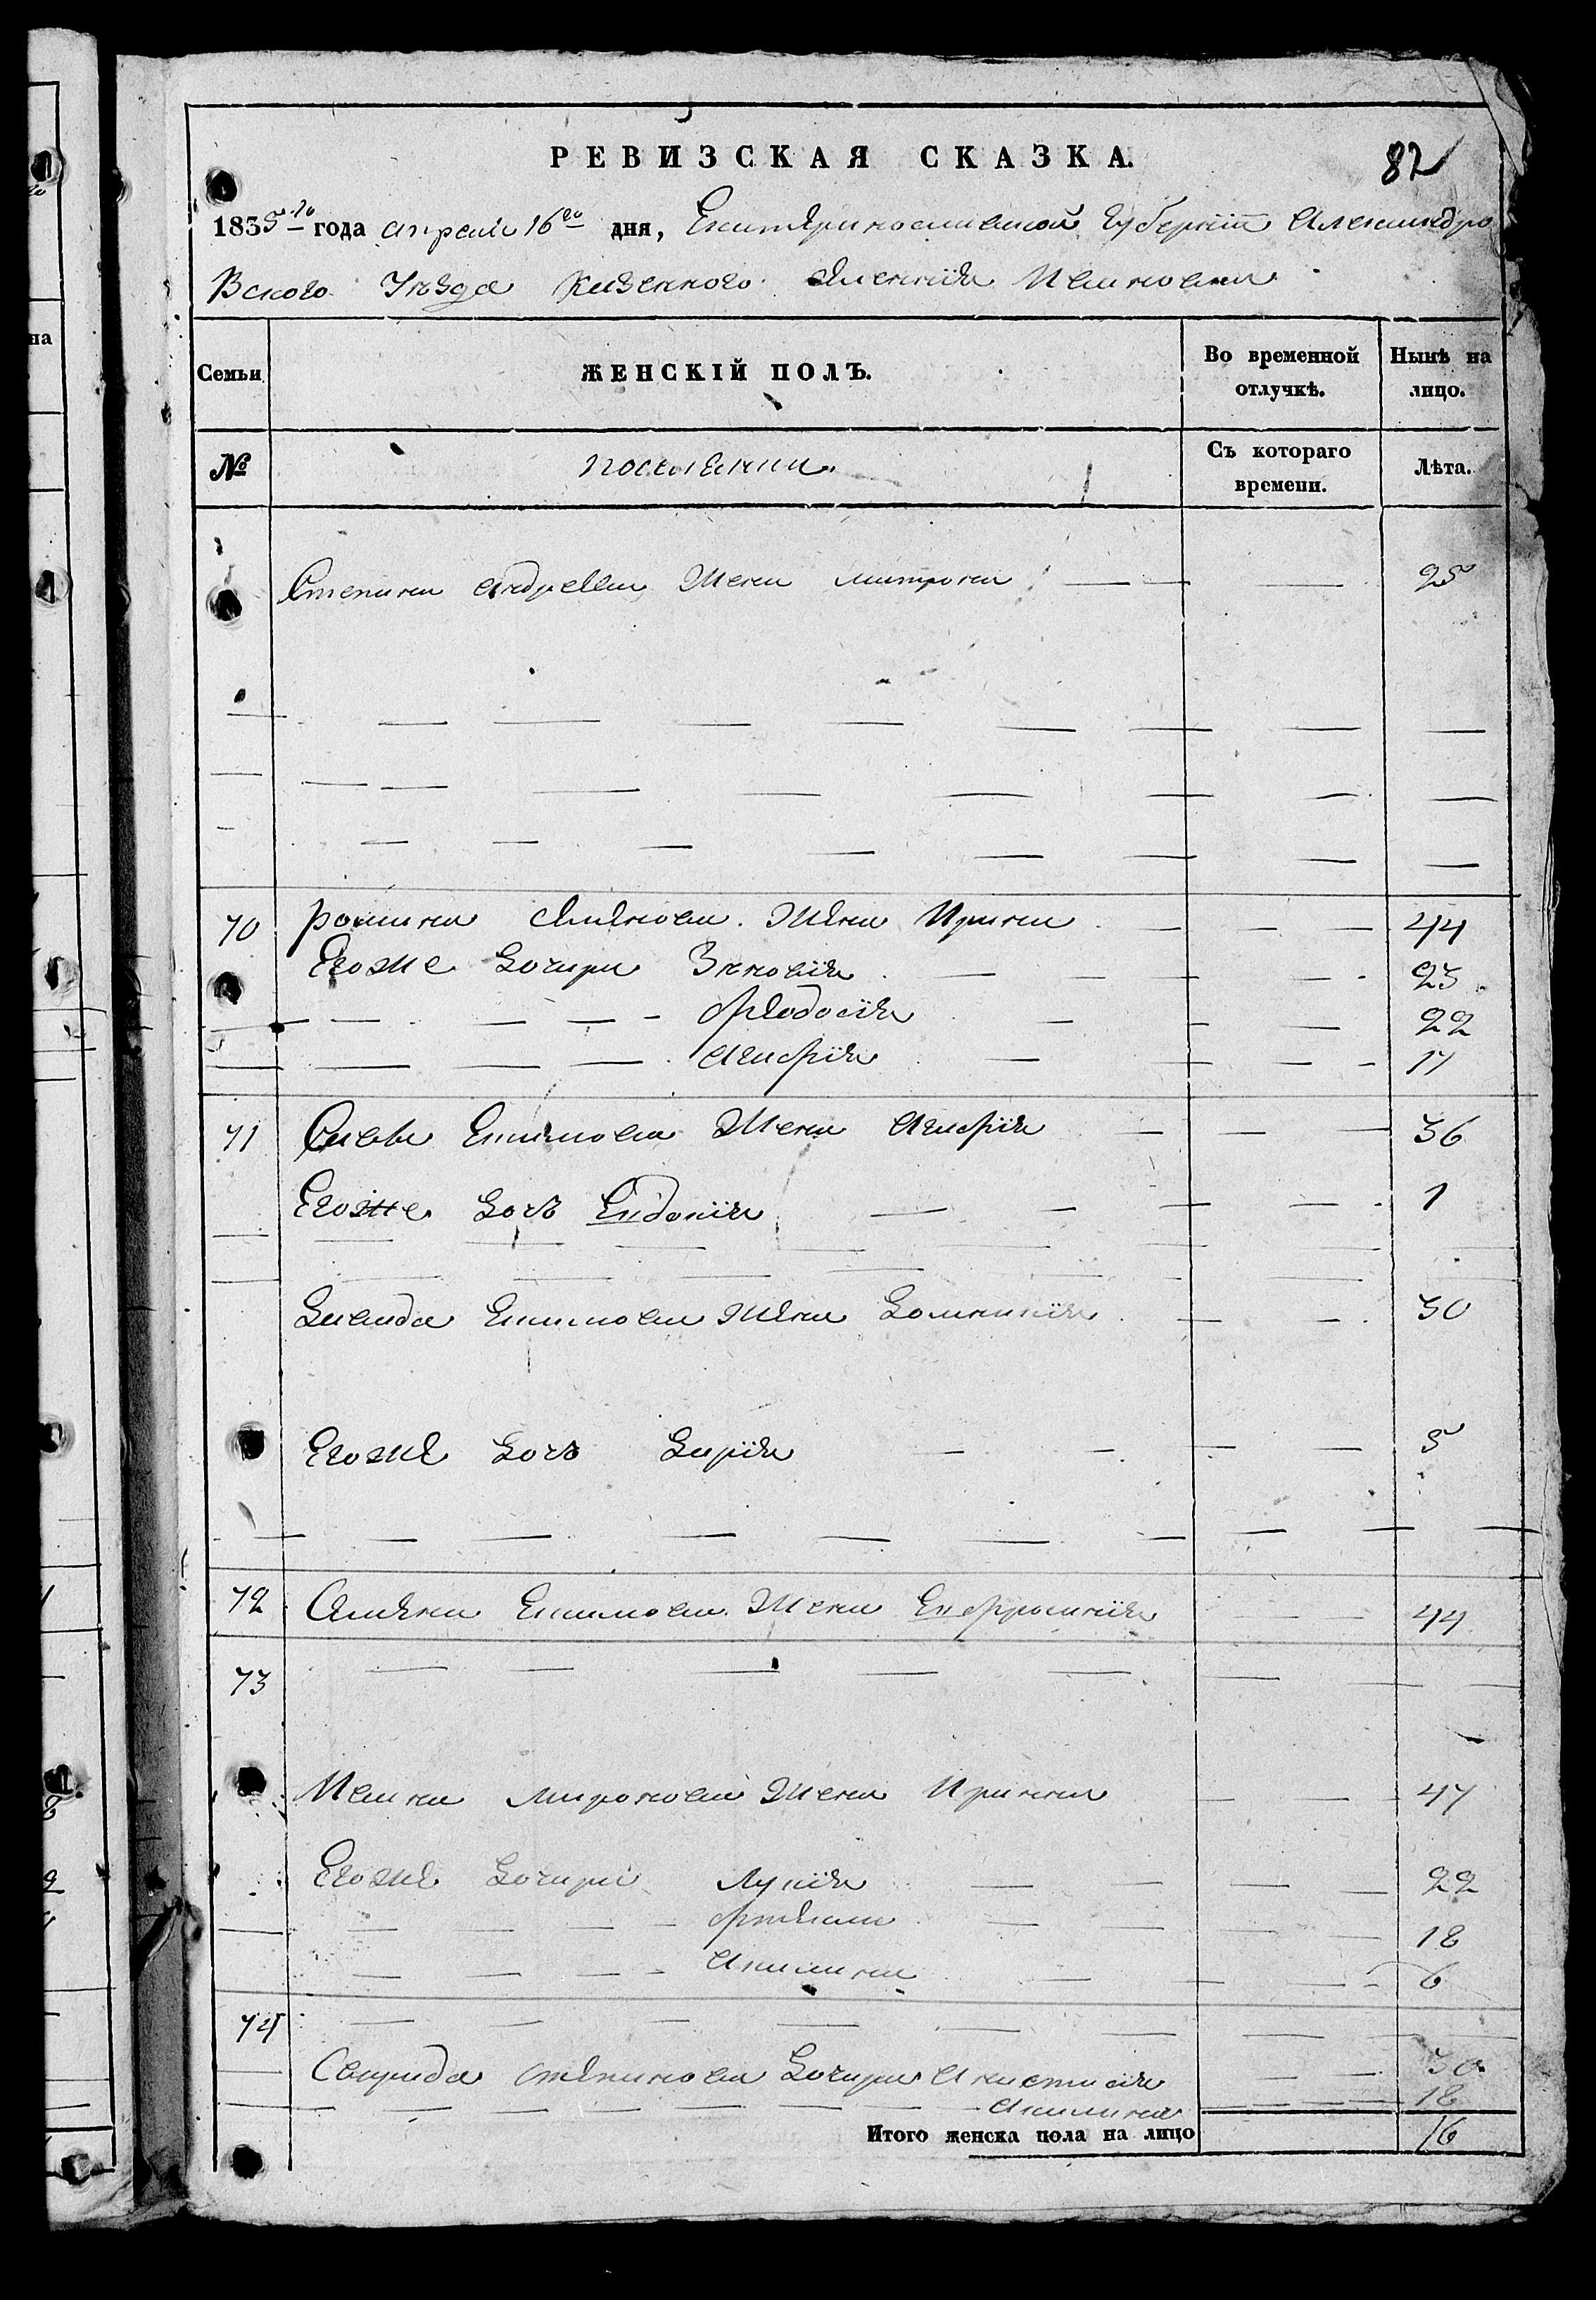 РЕВИЗСКАЯ СКАЗКА.
82
1835го года апреля 16го дня, Екатеринослаской Губерніи Александро
Вского Уезда Казенного селенія Ивановки
Семьи
ЖЕНСКІЙ ПОЛЪ.
Во временной отлучкѣ.
Нынѣ на лицо.
№
поселяники
Съ котораго времени.
Лѣта.
Степана андреева Жена матрона 25
70 романа Семенова Жена Ирина 44
Егоже Дочери Зеновія 23
Феодосія 22
Агафія 17
71 Савы Екимова Жена Агафія 36
Егоже Дочь Евдокія 1
Давида Екимова Жена Домникія 30
Егоже Дочь Дарія 5
72 Семена Екимова Жена Ефросинія 44
73
Ивана миронова Жена Иринна 47
Егоже Дочери Лукія 22
18
Акилина 6
74
Свирида степанова Дочери Анастасія 30
Акилина 18
Итого женска пола на лицо 16